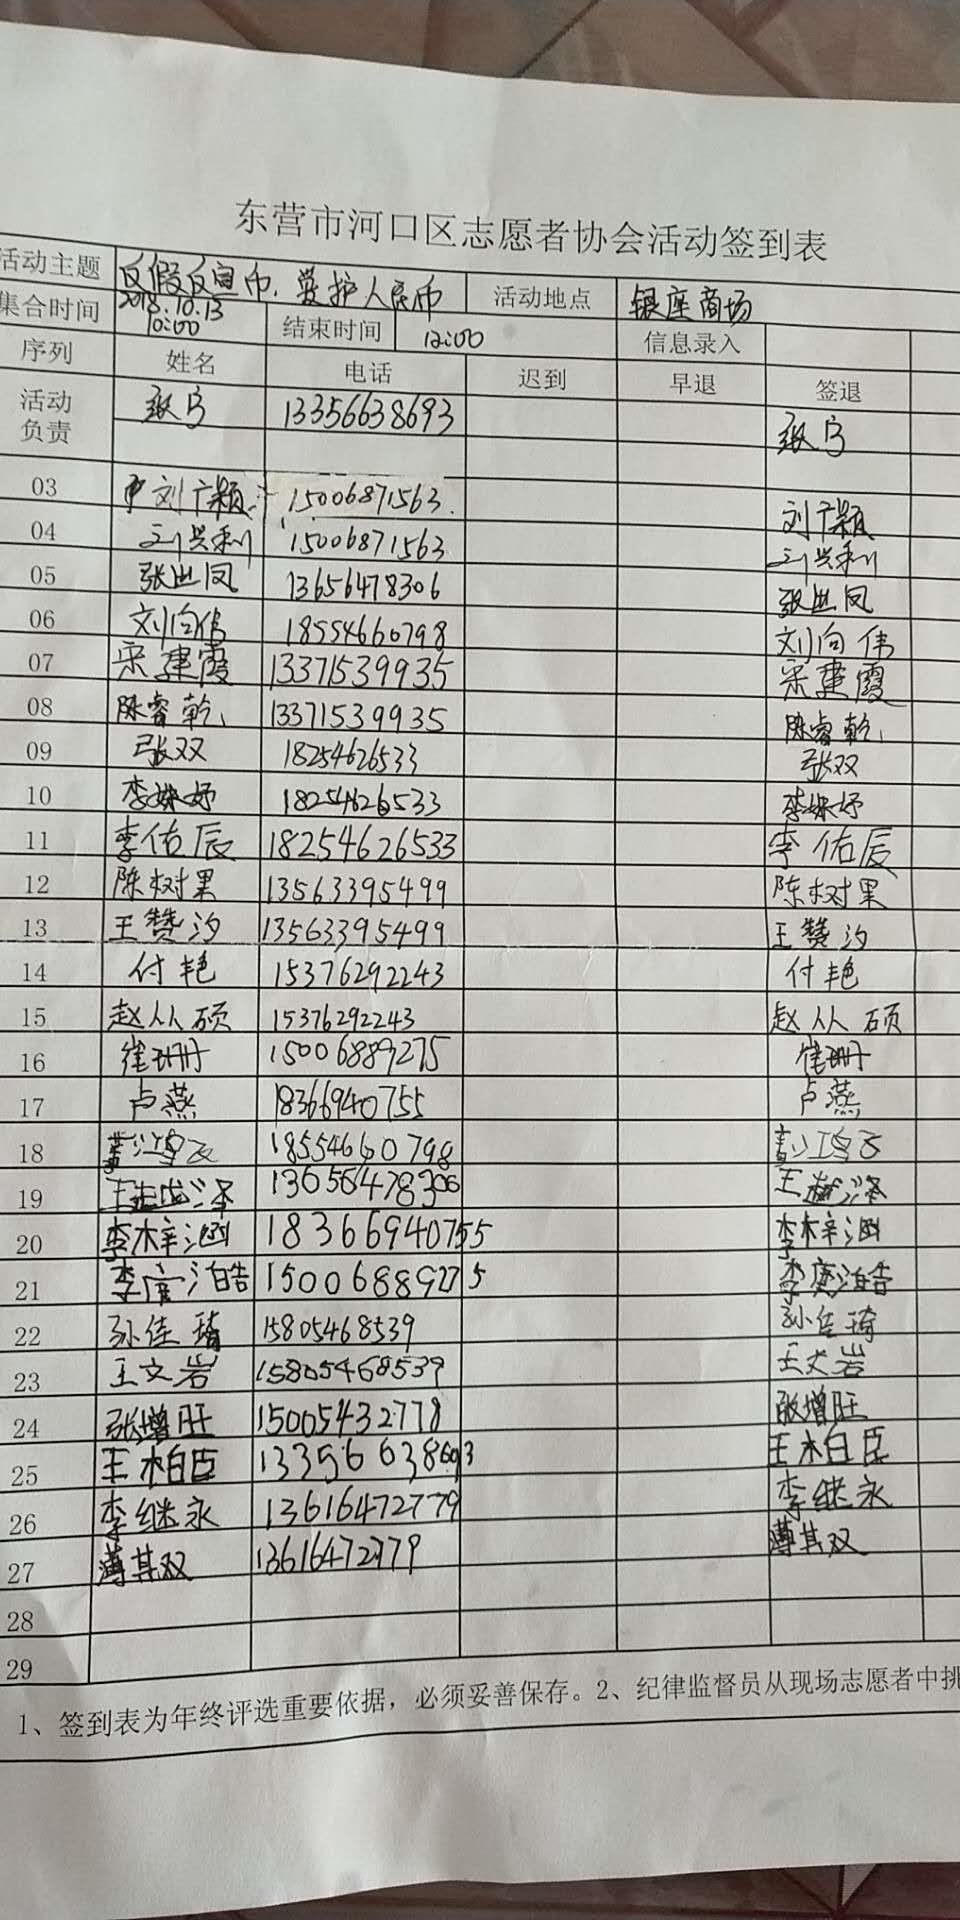 东营市河口区志愿者协会活动签到表
活动主题 反假反宣币，爱护人民币 活动地点 银座商场
集合时间 2018.10.13 10:00 结束时间 12:00 信息录入
序列 姓名 电话 迟到 早退 签退
活动负责 张宁 13356638693 张宁
03 刘广颖 15006871563 刘广颖
04 刘兴利 15006871563 刘兴利
05 张世凤 13656478306 张世凤
06 刘向伟 18554660798 刘向伟
07 宋建霞 13371539935 宋建霞
08 陈睿乾 13371539935 陈睿乾
09 张双 18254626533 张双
10 李姝妤 18254626533 李姝妤
11 李佑辰 18254626533 李佑辰
12 陈树果 13563395499 陈树果
13 王赞汐 13563395499 王赞汐
14 付艳 15376292243 付艳
15 赵从硕 15376292243 赵从硕
16 崔珊 15006889275 崔珊
17 卢燕 18366940755 卢燕
18 18554660798
19 13656478306
20 李梓涵 18366940755 李梓涵
21 李唐泊皓 15006889275 李唐泊皓
22 孙佳琦 15805468539 孙佳琦
23 王文岩 15805468539 王文岩
24 张增旺 15005432778 张增旺
25 王柏臣 13356638693 王柏臣
26 李继永 13616472779 李继永
27 薄其双 13616472779 薄其双
28
29
1、签到表为年终评选重要依据，必须妥善保存。2、纪律监督员从现场志愿者中挑